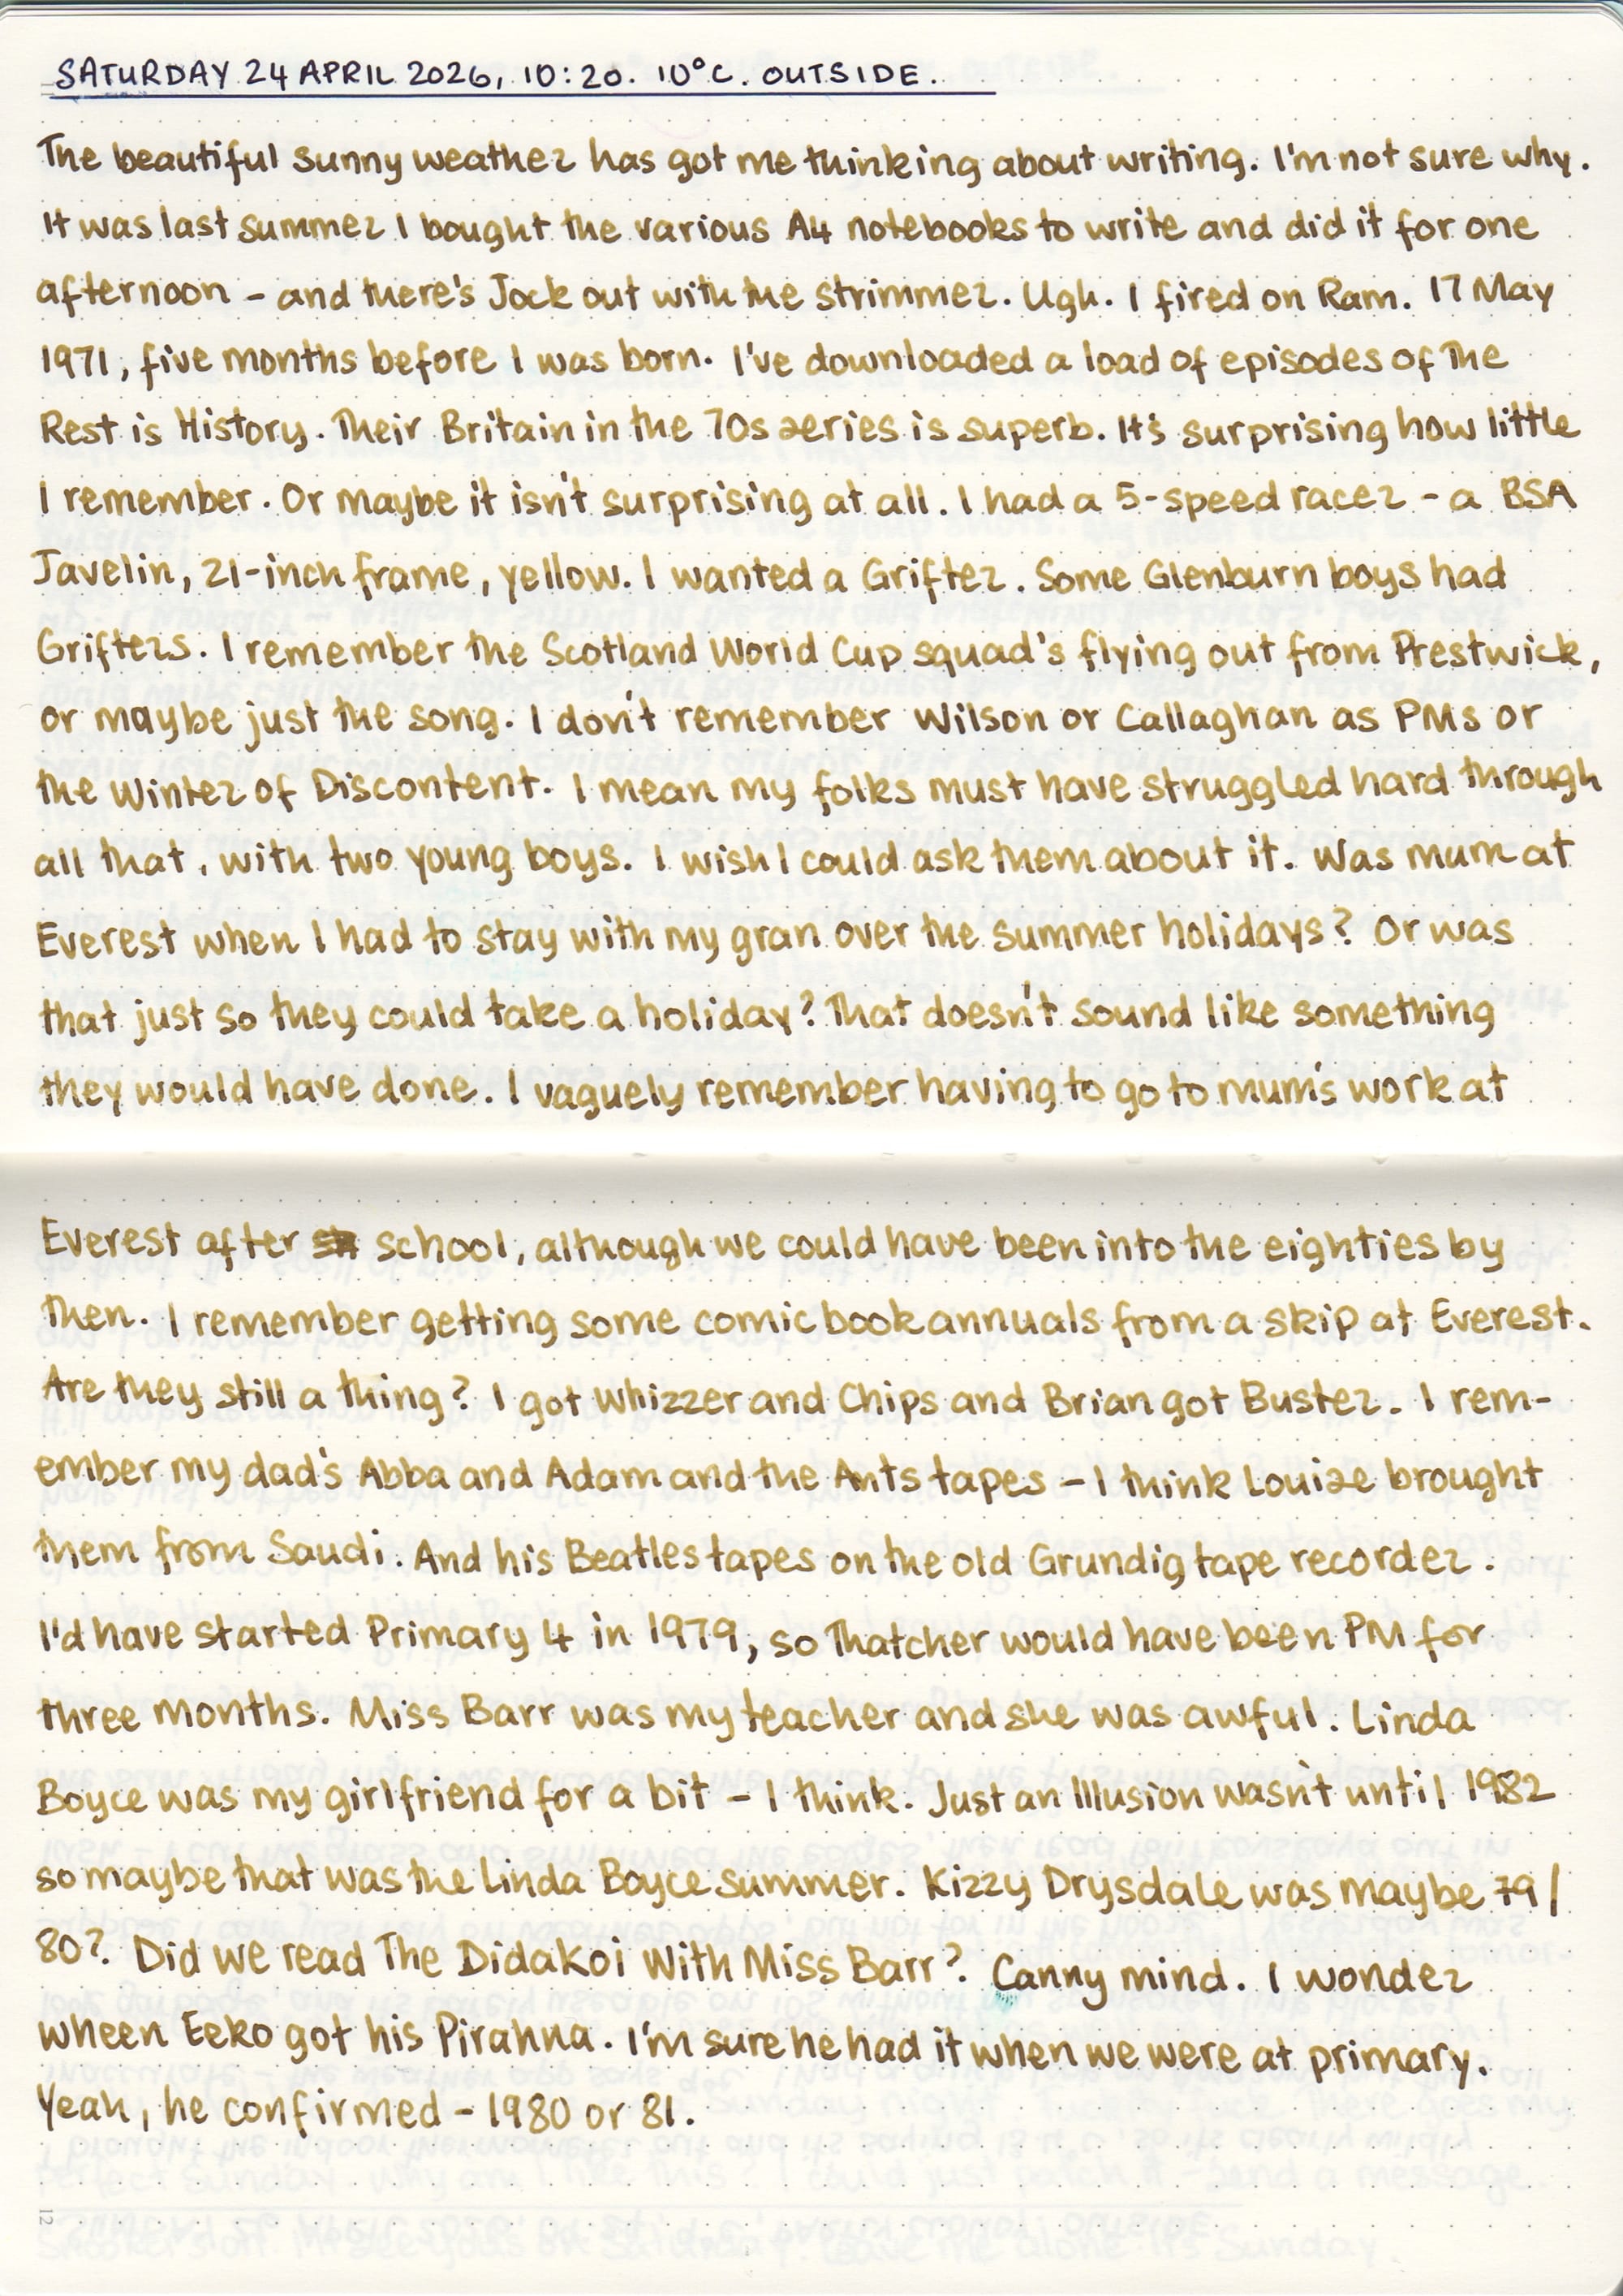 SATURDAY 24 APRIL 2026, 10:20. 10°C. OUTSIDE.
The beautiful sunny weather has got me thinking about writing. I'm not sure why.
It was last summer I bought the various A4 notebooks to write and did it for one
afternoon – and there's Jock out with the strimmer. Ugh. I fired on Ram. 17 May
1971, five months before I was born. I've downloaded a load of episodes of The
Rest is History. Their Britain in the 70s series is superb. It's surprising how little
I remember. Or maybe it isn't surprising at all. I had a 5-speed racer – a BSA
Javelin, 21-inch frame, yellow. I wanted a Grifter. Some Glenburn boys had
Grifters. I remember the Scotland World Cup squad's flying out from Prestwick,
or maybe just the song. I don't remember Wilson or Callaghan as PMs or
the Winter of Discontent. I mean my folks must have struggled hard through
all that, with two young boys. I wish I could ask them about it. Was mum at
Everest when I had to stay with my gran over the summer holidays? Or was
that just so they could take a holiday? That doesn't sound like something
they would have done. I vaguely remember having to go to mum's work at
Everest after school, although we could have been into the eighties by
then. I remember getting some comic book annuals from a skip at Everest.
Are they still a thing? I got Whizzer and Chips and Brian got Buster. I rem-
ember my dad's Abba and Adam and the Ants tapes – I think Louise brought
them from Saudi. And his Beatles tapes on the old Grundig tape recorder.
I'd have started Primary 4 in 1979, so Thatcher would have been PM for
three months. Miss Barr was my teacher and she was awful. Linda
Boyce was my girlfriend for a bit – I think. Just an Illusion wasn't until 1982
so maybe that was the Linda Boyce summer. Kizzy Drysdale was maybe 79/
80? Did we read The Didakoi with Miss Barr? Canny mind. I wonder
wheen Eeko got his Pirahna. I'm sure he had it when we were at primary.
Yeah, he confirmed – 1980 or 81.
12